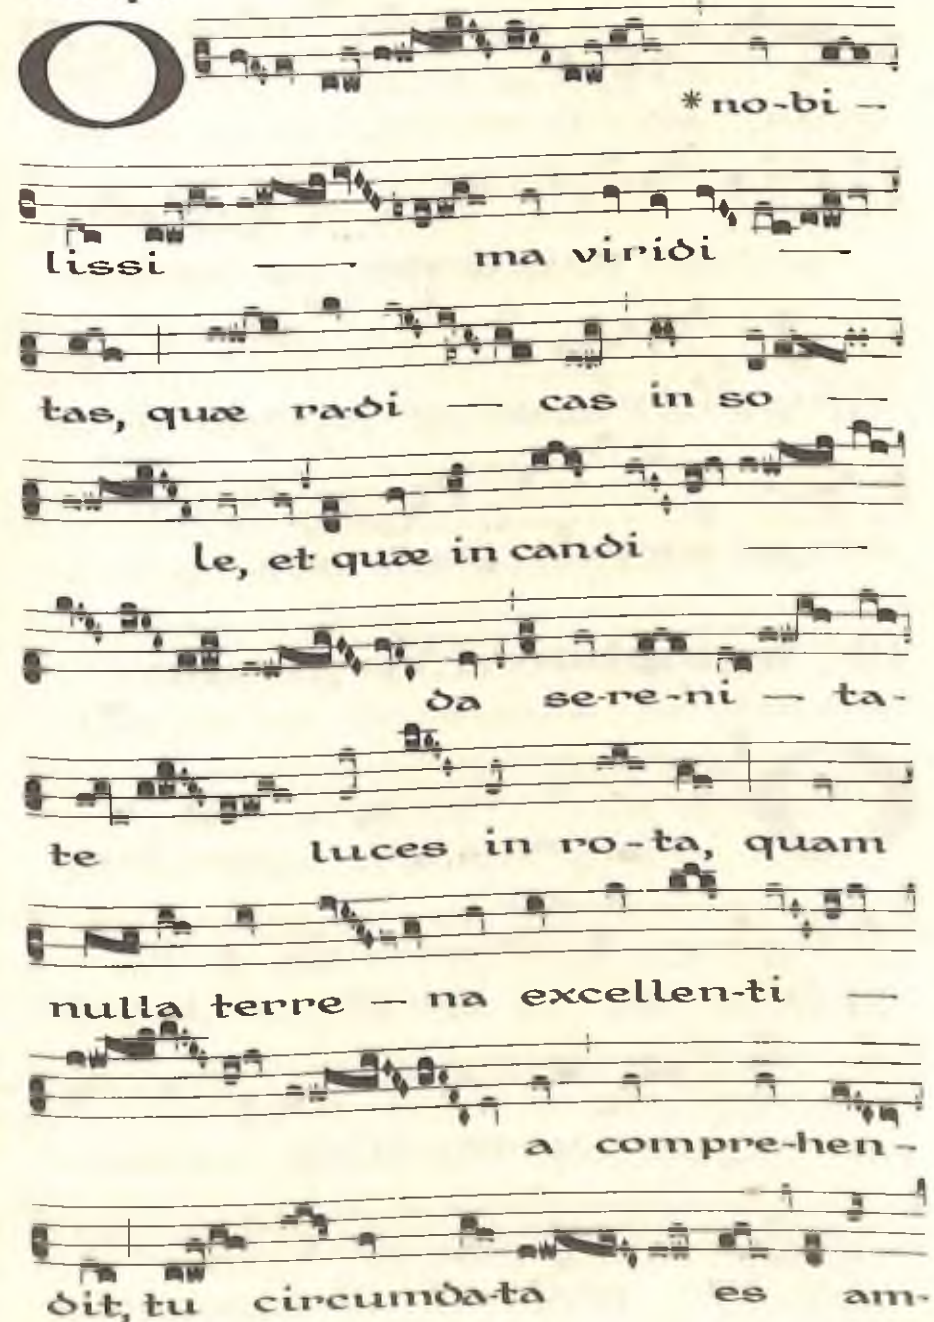 O * no-bi —
lissi — ma viridi —
tas, quæ radi — cas in so —
le, et quæ in candi —
da se-re-ni — ta-
te luces in ro-ta, quam
nulla terre — na excellen-ti —
a compre-hen-
dit, tu circumda-ta es am-